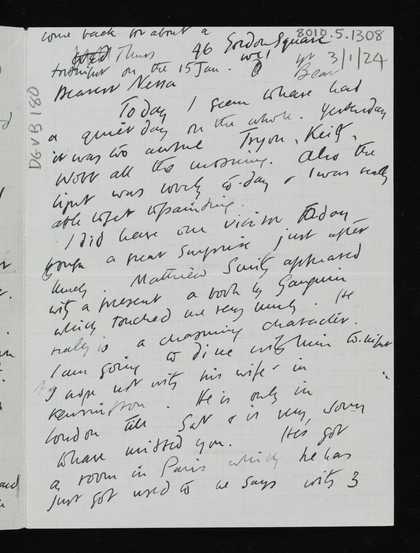 come back for about a
8010.5.1308
Thurs 46 Gordon Square
fortnight on the 15 Jan. WC1
3/1/24
yr
Bear
DG VB 180
Dearest Nessa
Today I seem to have had
a quiet day on the whole. Yesterday
it was too awful Tryon, Keith,
Wolf all the morning. Also the
light was lovely to-day & I was really
able to get to painting.
I did have one visitor today
a great surprise just after
lunch. Matthew Smith appeared
with a present a book by Gauguin
which touched me very much. He
really is a charming character.
I am going to dine with him to-night
I hope not with his wife & in
Kennington. He is only in
London till Sat & is very sorry
to have missed you. He's got
a room in Paris which he has
just got used to he says with 3